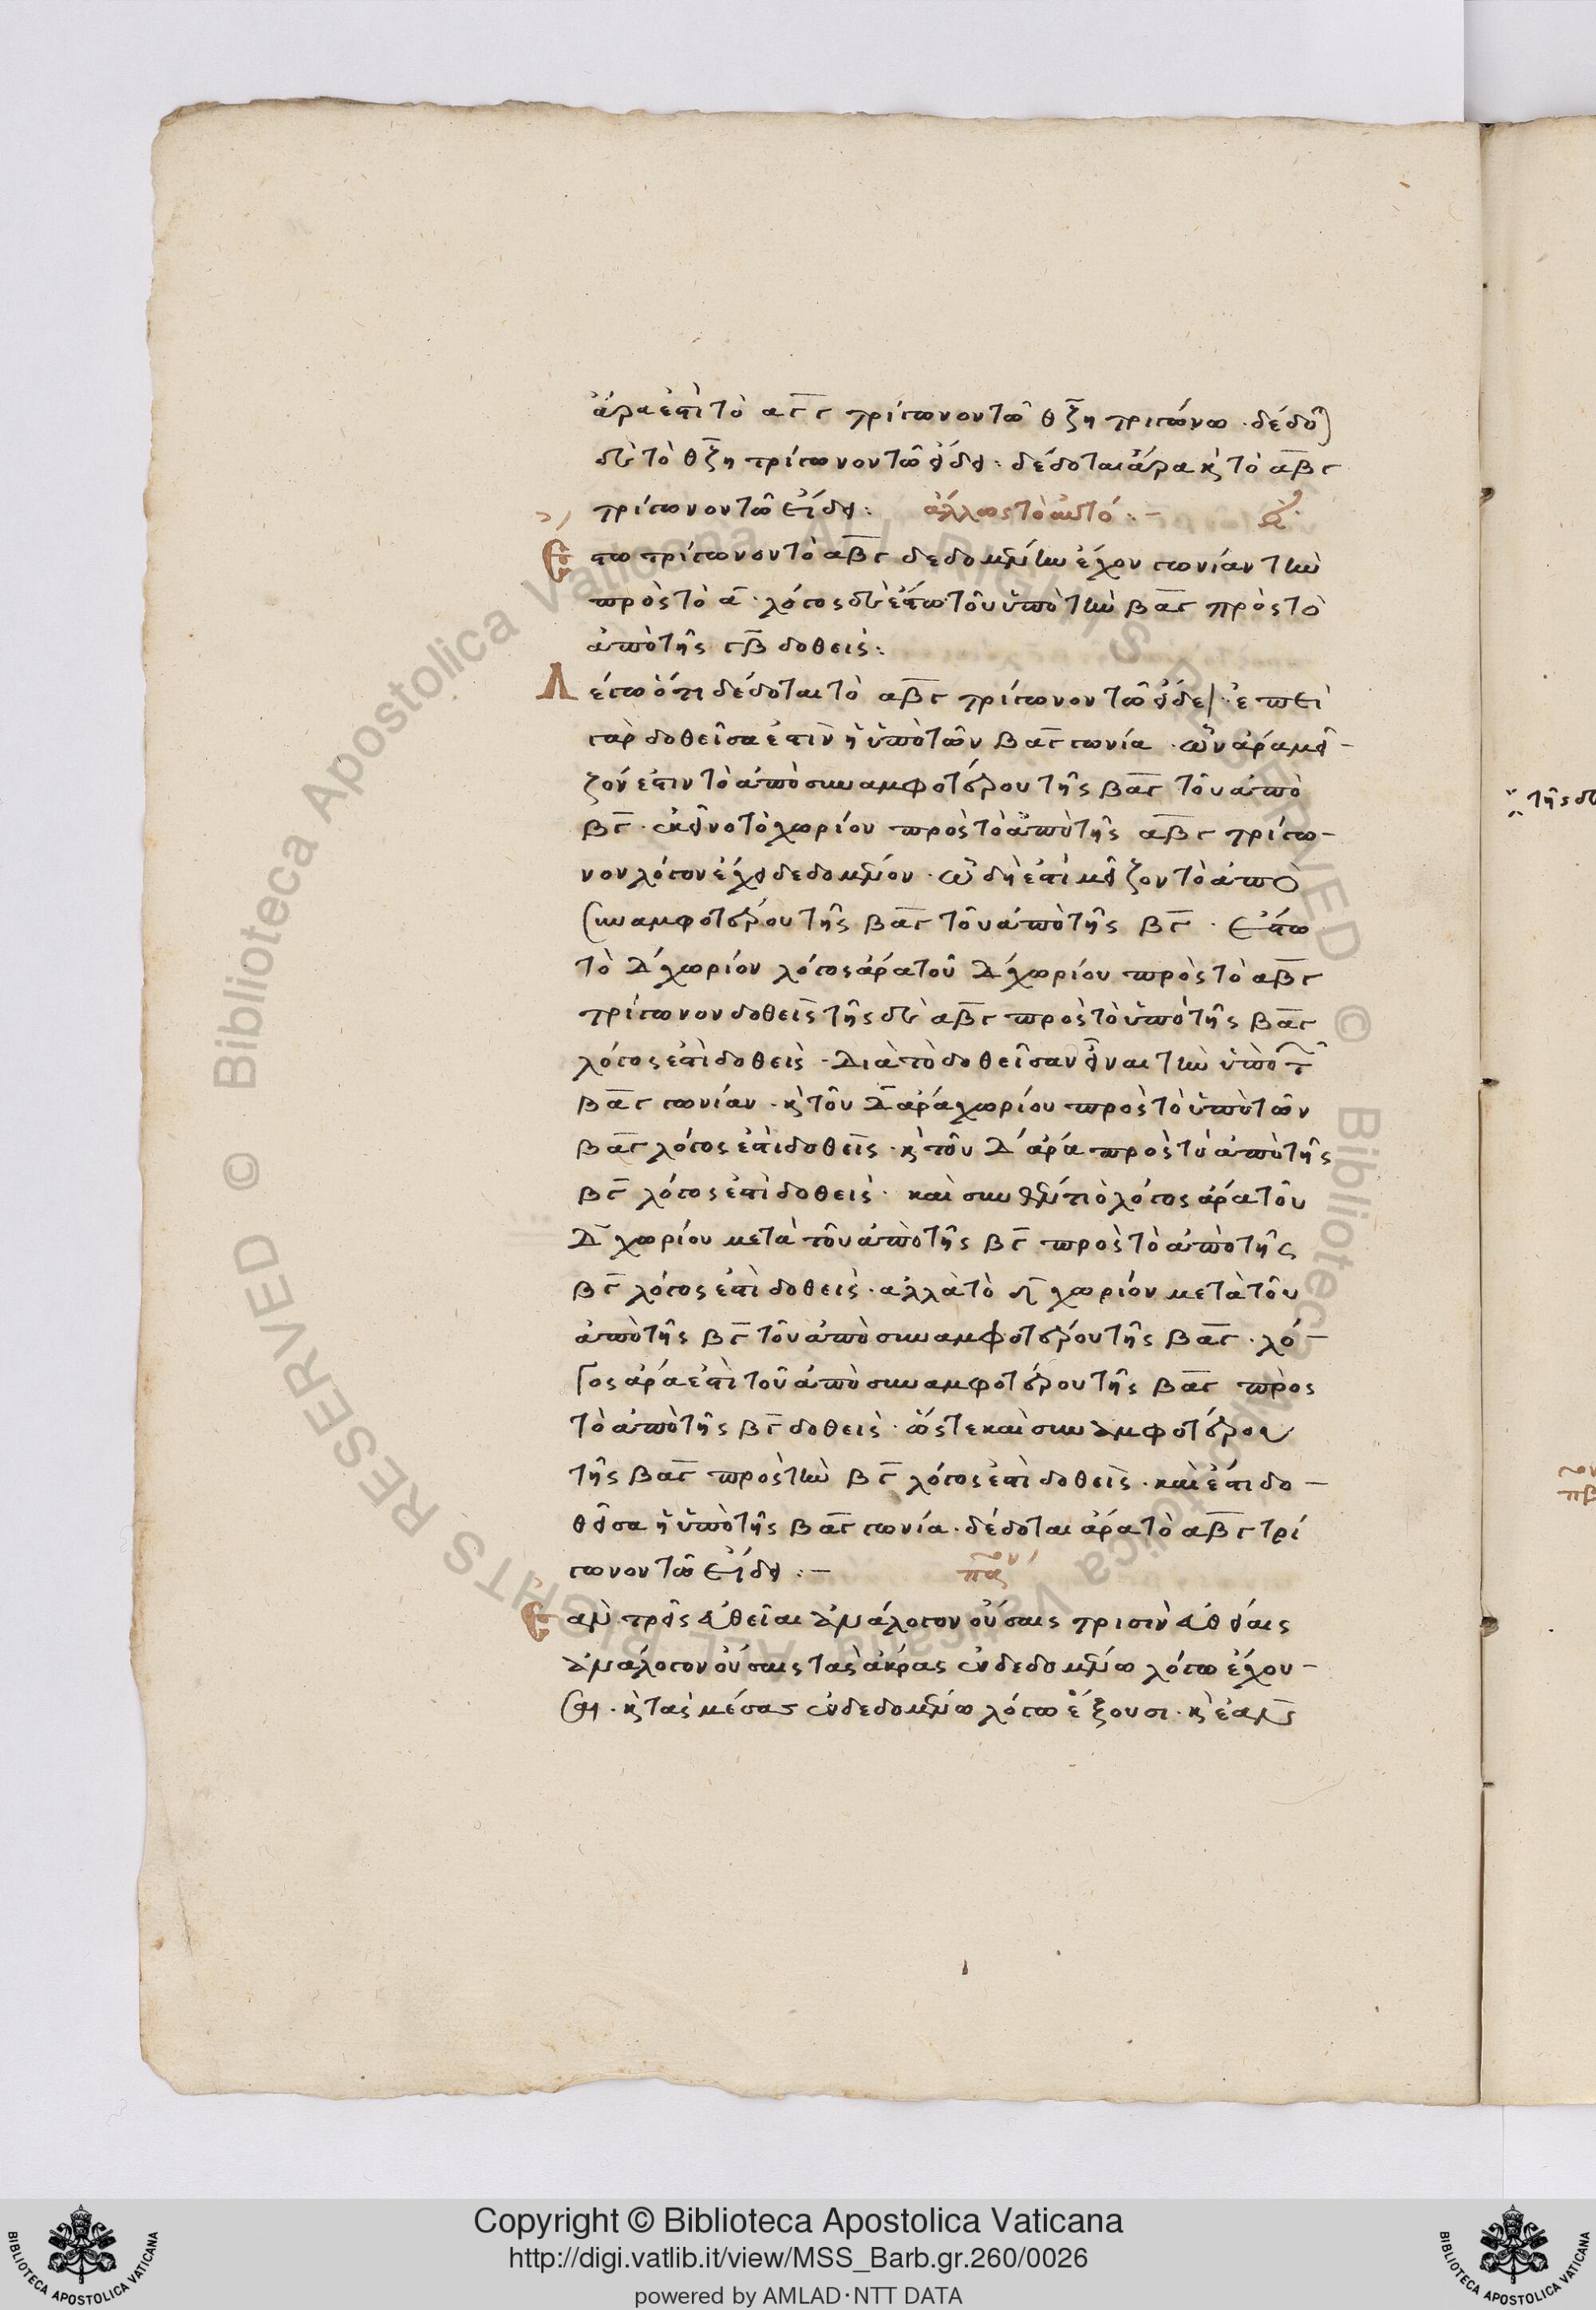 ἄρα ἐστὶ τὸ αβγ τρίγωνον τῶ θζη τριγώνω · δέδοται
δὲ τὸ θζη τρίγωνον τῶ εἴδει · δέδοται ἄρα καὶ τὸ αβγ
τρίγωνον τῶ εἴδει : ἄλλως τὸ αὐτό : –
Εστω τρίγωνον τὸ αβγ δεδομένην ἔχον γωνίαν τὴν
πρὸς τὸ α · λόγος δὲ ἔστω τοῦ ὑπὸ τὴν βαγ πρὸς τὸ
ἀπὸ τῆς γβ δοθεὶς :
Λέγω ὅτι δέδοται τὸ αβγ τρίγωνον τῶ εἴδει · ἐπεὶ
γὰρ δοθεῖσα ἐστὶν ἡ ὑπὸ τῶν βαγ γωνία · ὧν ἄρα μεῖ-
ζόν ἐστιν τὸ ἀπὸ συναμφοτέρου τῆς βαγ τοῦ ἀπὸ
βγ · ἐκεῖνο τὸ χωρίον πρὸς τὸ ἀπὸ τῆς αβγ τρίγω-
νον λόγον ἔχει δεδομένον · ὧ δὴ ἐστὶ μεῖζον τὸ ἀπὸ
συναμφοτέρου τῆς βαγ τοῦ ἀπὸ τῆς βγ · ἔστω
τὸ Δ χωρίον λόγος ἄρα τοῦ Δ χωρίου πρὸς τὸ αβγ
τρίγωνον δοθεὶς τῆς δὲ αβγ πρὸς τὸ ὑπὸ τῆς βαγ
λόγος ἐστὶ δοθεὶς · Διὰ τὸ δοθεῖσαν εἶναι τὴν ὑπὸ τ
βαγ γωνίαν · καὶ τοῦ Δ ἄρα χωρίου πρὸς τὸ ὑπὸ τῶν
βαγ λόγος ἐστὶ δοθεὶς · καὶ τοῦ Δ ἄρα πρὸς τὸ ἀπὸ τῆς
βγ λόγος ἐστὶ δοθεὶς · καὶ συνθέντι ὁ λόγος ἄρα τοῦ
Δ χωρίου μετὰ τοῦ ἀπὸ τῆς βγ πρὸς τὸ ἀπὸ τῆς
βγ λόγος ἐστὶ δοθεὶς · ἀλλὰ τὸ Δ χωρίον μετὰ τοῦ
ἀπὸ τῆς βγ τοῦ ἀπὸ συναμφοτέρου τῆς βαγ · λό-
γος ἄρα ἐστὶ τοῦ ἀπὸ συναμφοτέρου τῆς βαγ πρὸς
τὸ ἀπὸ τῆς βγ δοθεὶς · ὥστε καὶ συναμφοτέρου
τῆς βαγ πρὸς τὴν βγ λόγος ἐστὶ δοθεὶς · καὶ ἔστι δο-
θεῖσα ἡ ὑπὸ τῆς βαγ γωνία · δέδοται ἄρα τὸ αβγ τρί
γωνον τῶ εἴδει : – πα
Εαν τρεῖς εὐθεῖαι ἀνάλογον οὔσαις τρισὶν εὐθείαις
ἀνάλογον οὔσαις τὰς ἄκρας ἐν δεδομένω λόγω ἔχου-
σι · καὶ τὰς μέσας ἐν δεδομένω λόγω ἕξουσι · καὶ ἐὰν
Copyright © Biblioteca Apostolica Vaticana
http://digi.vatlib.it/view/MSS_Barb.gr.260/0026
powered by AMLAD·NTT DATA